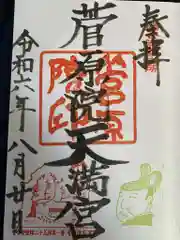 奉拝
菅原院天満宮
令和六年八月廿日